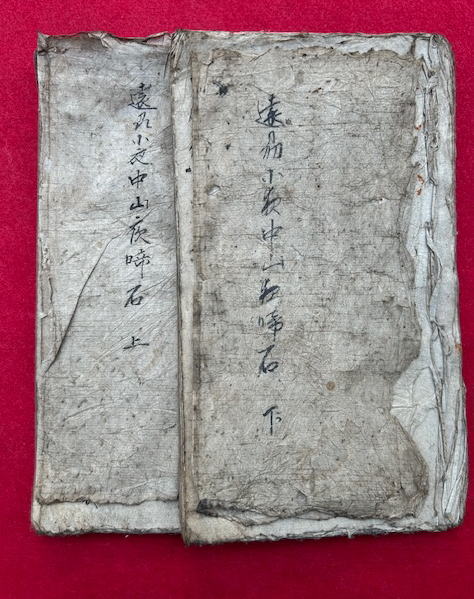 遠州小夜中山夜啼石 上
遠州小夜中山夜啼石 下